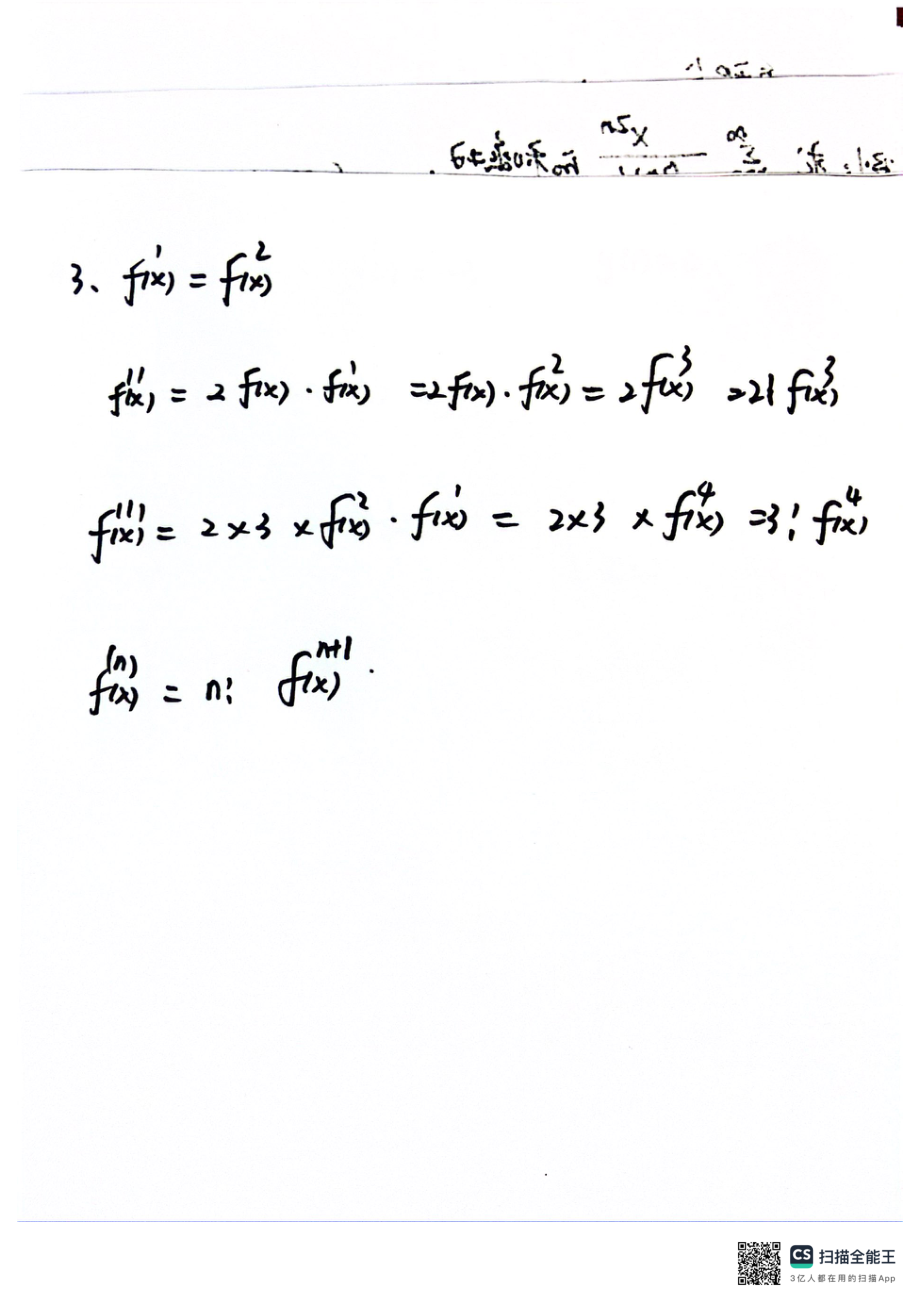 3、f'(x) = f²(x)
f''(x) = 2f(x)·f'(x) =2f(x)·f²(x) = 2f³(x) =2! f³(x)
f'''(x) = 2×3×f²(x)·f'(x) = 2×3×f⁴(x) =3! f⁴(x)
f⁽ⁿ⁾(x) = n! fⁿ⁺¹(x).
CS 扫描全能王
3亿人都在用的扫描App